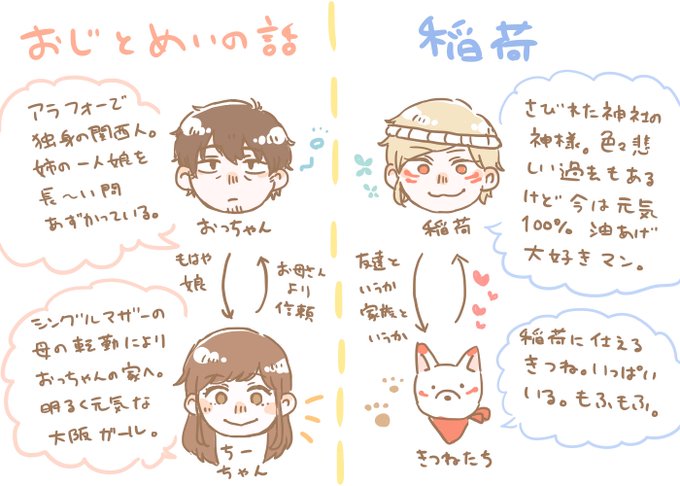 おじとめいの話
アラフォーで
独身の関西人。
姉の一人娘を
長〜い間
あずかっている。
おっちゃん
もはや
娘
お母さん
より
信頼
シングルマザーの
母の転勤により
おっちゃんの家へ。
明るく元気な
大阪ガール。
ちー
ちゃん
稲荷
さびれた神社の
神様。色々悲
しい過去もある
けど今は元気
100% 油あげ
大好きマン。
稲荷
友達と
いうか
家族と
いうか
稲荷に仕える
きつね。いっぱい
いる。もふもふ。
きつねたち